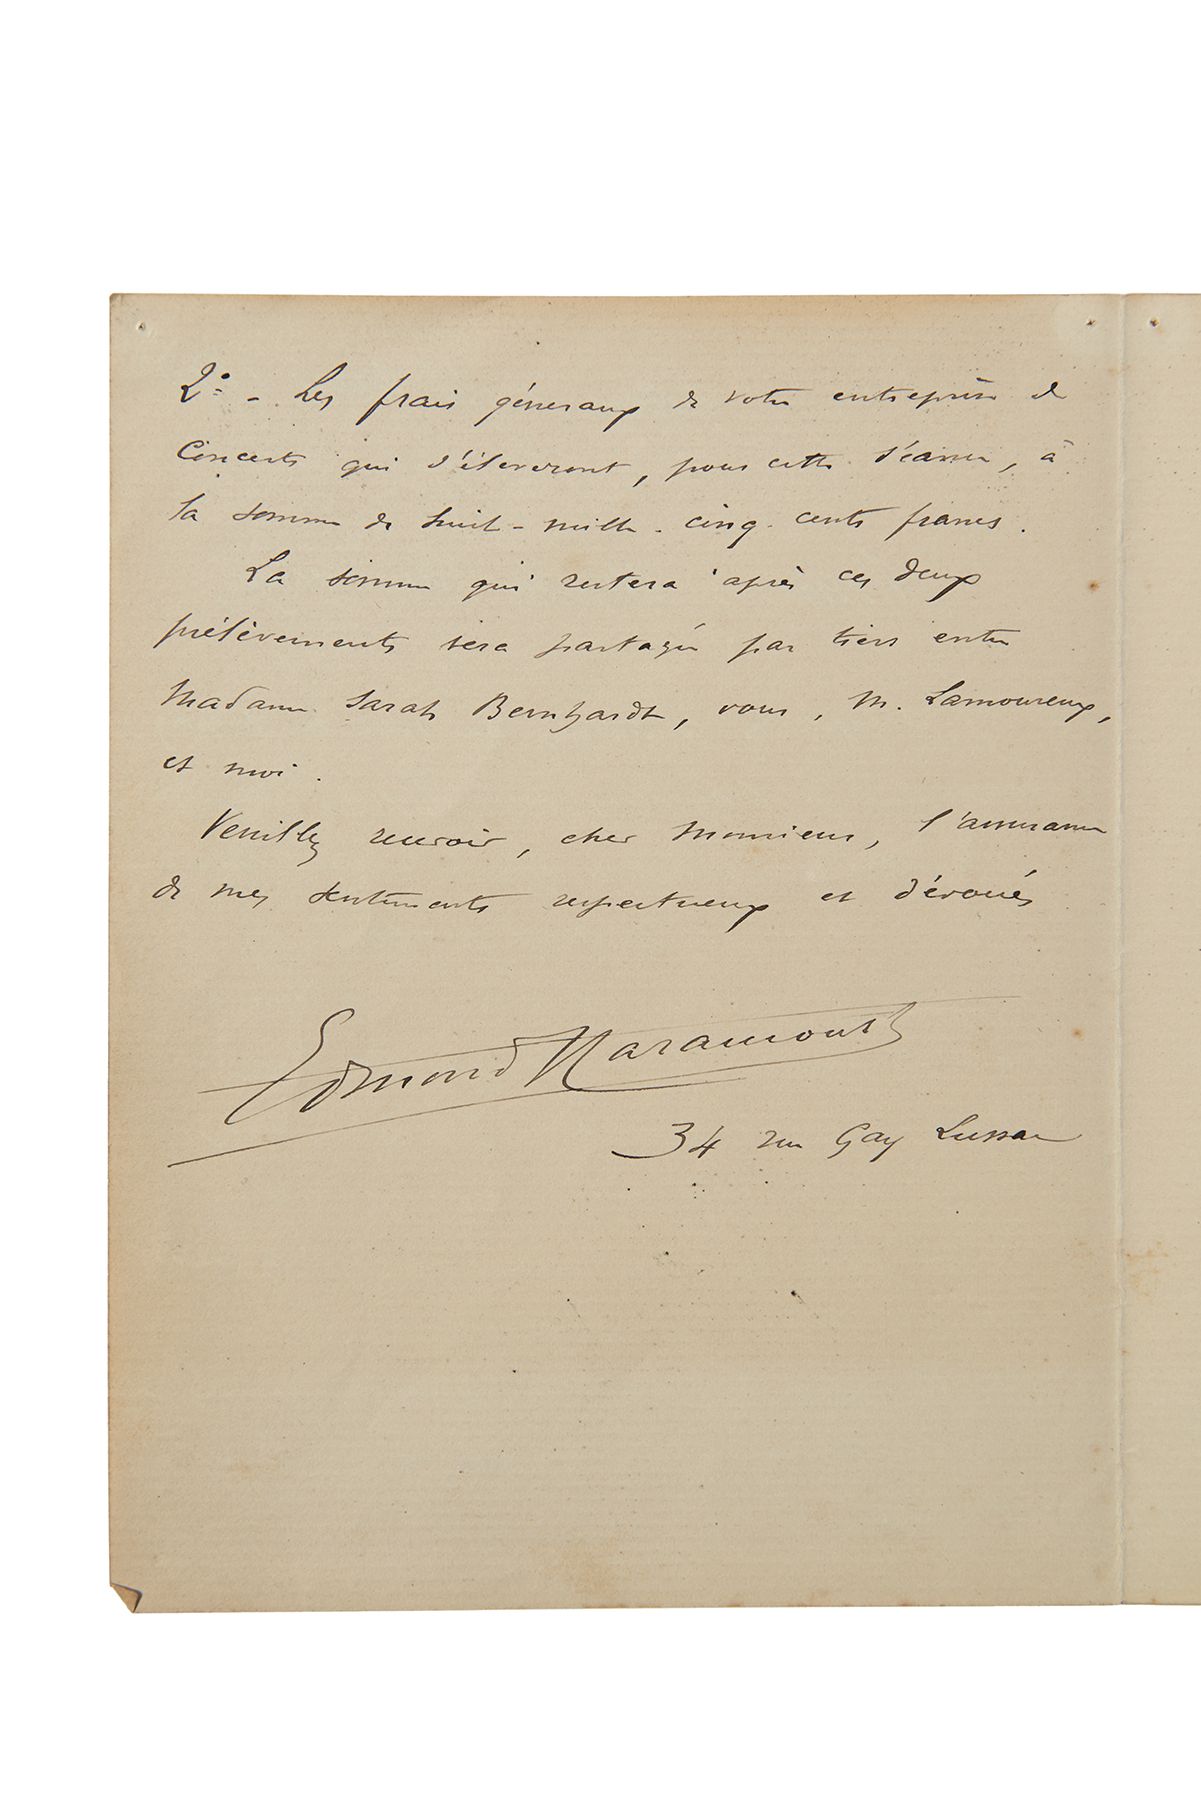 2° - Les frais généraux de votre entreprise de
Concerts qui s'élèveront, pour cette séance, à
la somme de huit-mille-cinq-cents francs.
La somme qui restera après ces deux
prélèvements sera partagée par tiers entre
Madame Sarah Bernhardt, vous, M. Lamoureux,
et moi.
Veuillez recevoir, cher Monsieur, l'assurance
de mes sentiments respectueux et dévoués
Edmond Haraucourt
34 rue Gay Lussac